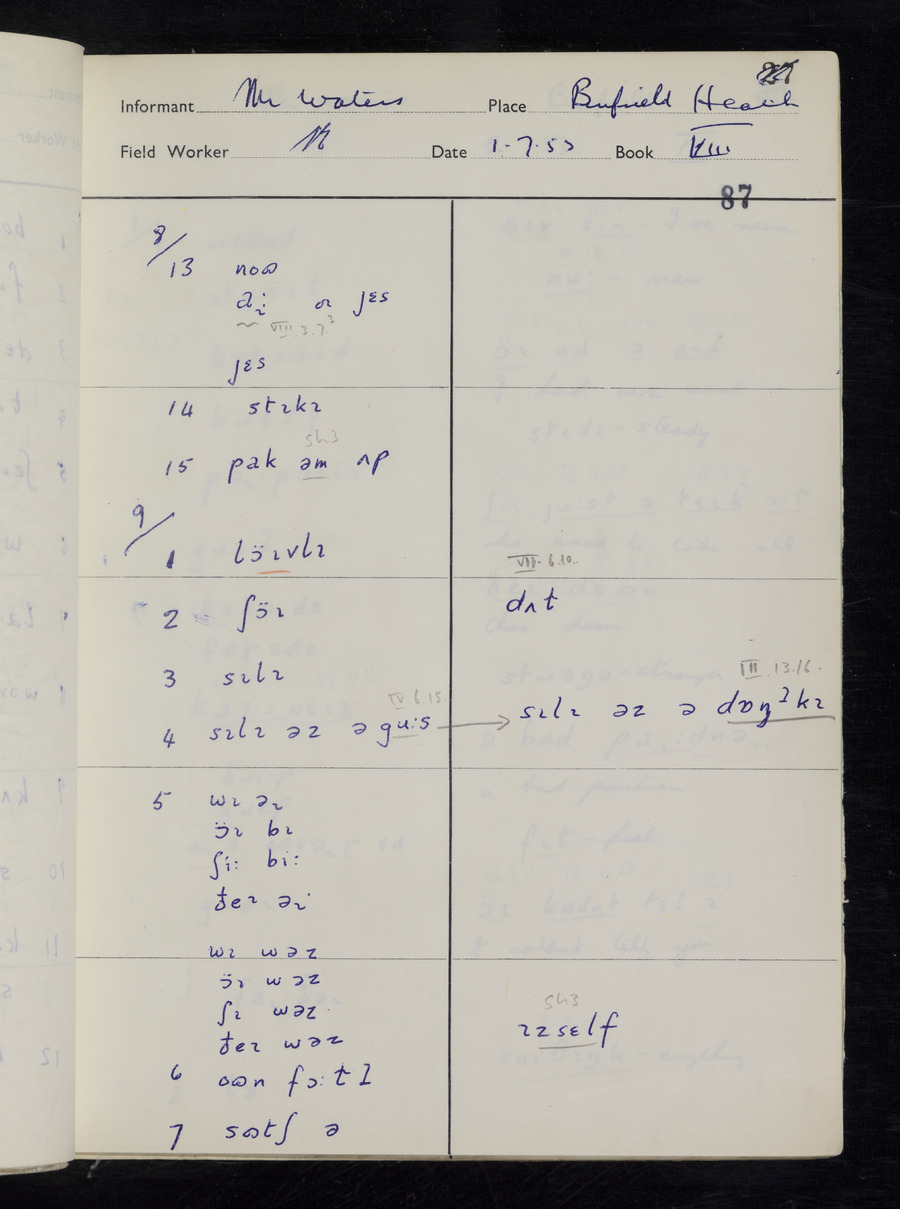 Informant Mr Waters Place Burfield Heath
Field Worker Date 1.7.53 Book VIII
87
8/
13 noɷ
əɪ or jɛs
VIII.3.7³
jɛs
14 stɪkɪ
sh3
15 pak əm ʌp
9/
1 lɔ̈ɪvlɪ
VII.6.10.
2 ʃɔ̈ɪ
dʌt
3 sɪlɪ
III.13.16.
IV.6.15.
4 sɪlɪ əz ə gu:s → sɪlɪ əz ə dɒŋ²kɪ
5 wɪ əɪ
ɔ̈ɪ bɪ
ʃi: bi:
ðeɪ əɪ
wɪ wəz
ɔ̈ɪ wəz
ʃɪ wəz
sh3
ɪzsɛlf
ðeɪ wəz
6 oɷn fɔ:t I
7 sɷtʃ ə